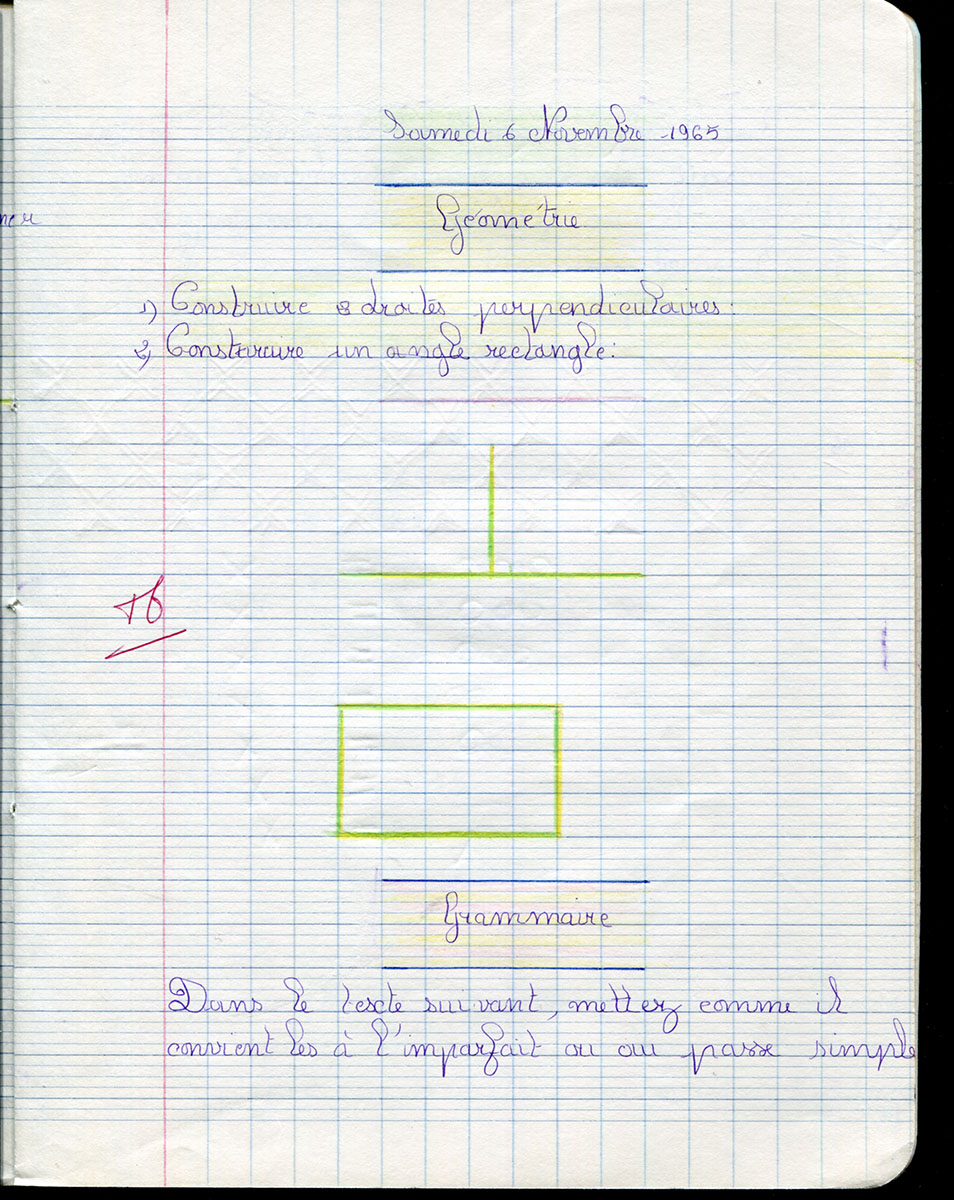 Samedi 6 Novembre 1965
Géométrie
1) Construire 2 droites perpendiculaires.
2) Construire un angle rectangle:
TB
Grammaire
Dans le texte suivant, mettez comme il
convient les à l'imparfait ou au passé simple